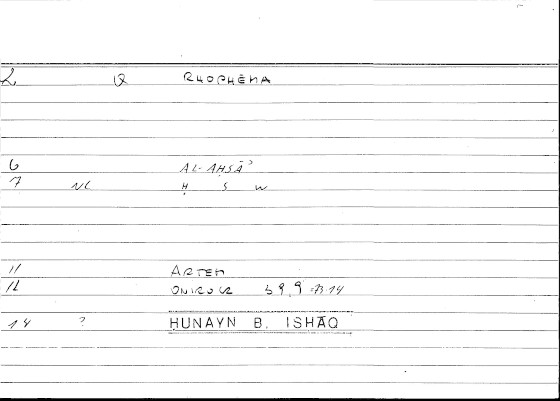 2 Q RHOPHĒMA
6 AL-AḤSĀʾ
7 NC Ḥ S W
11 ARTEM
12 ONIROCR 59,9 =73.14
14 ? ḤUNAYN B. ISḤĀQ